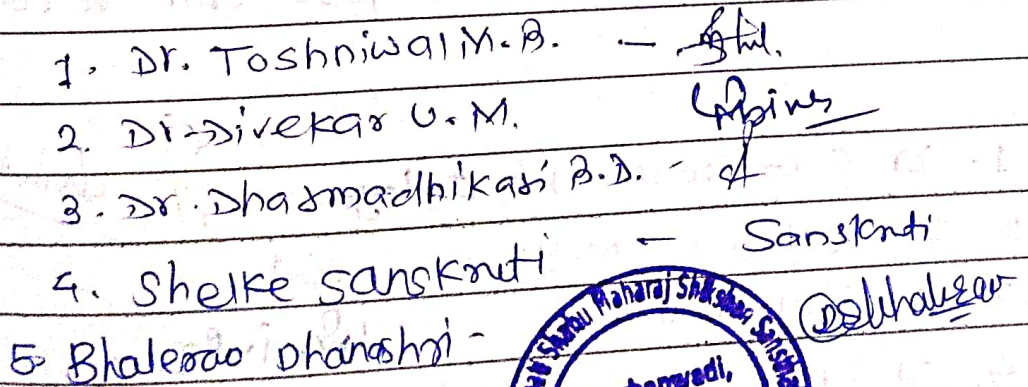 1. Dr. Toshniwal M.B. -
2. Dr. Divekar U.M.
3. Dr. Dharmadhikari B.D. -
4. Shelke Sanskruti - Sanskruti
5 Bhalerao Dhanashri - DSBhalerao
Shahu Maharaj Shikshan Sanstha